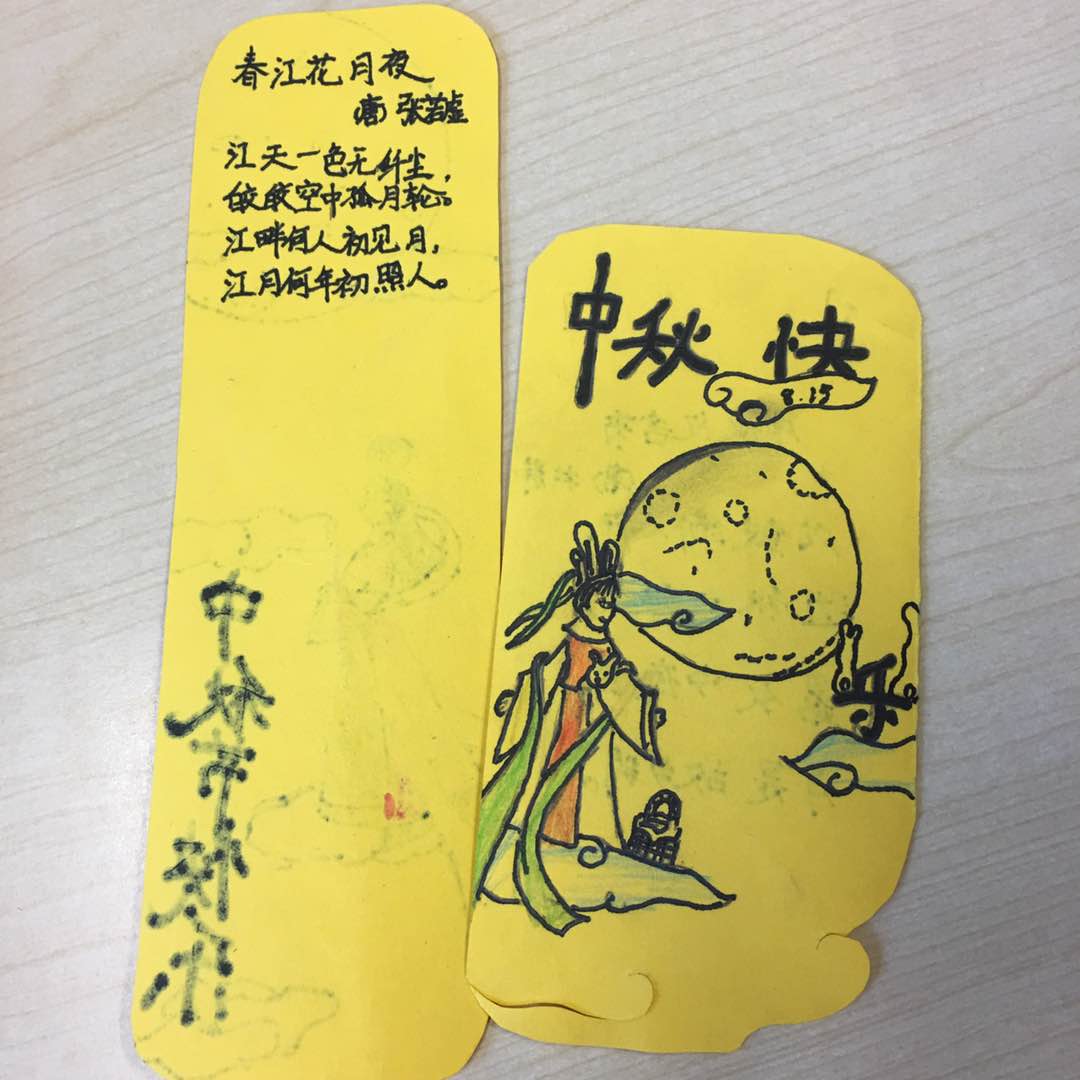 春江花月夜
唐 张若虚
江天一色无纤尘，
皎皎空中孤月轮。
江畔何人初见月，
江月何年初照人。
中秋节快乐
中秋 快
8.15
乐